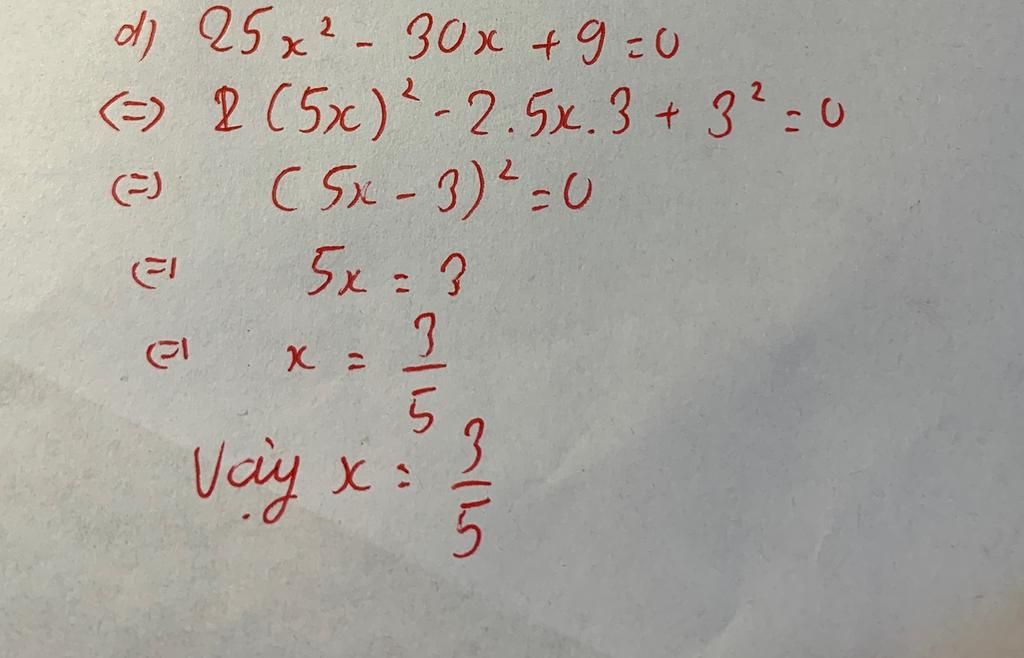 d) 25x² - 30x + 9 = 0
<=> (5x)² - 2.5x.3 + 3² = 0
<=> (5x - 3)² = 0
<=> 5x = 3
<=> x = 3/5
Vậy x = 3/5